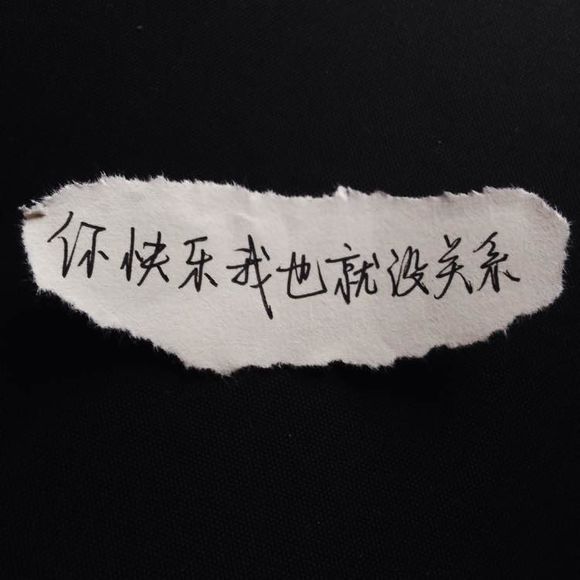 你快乐我也就没关系